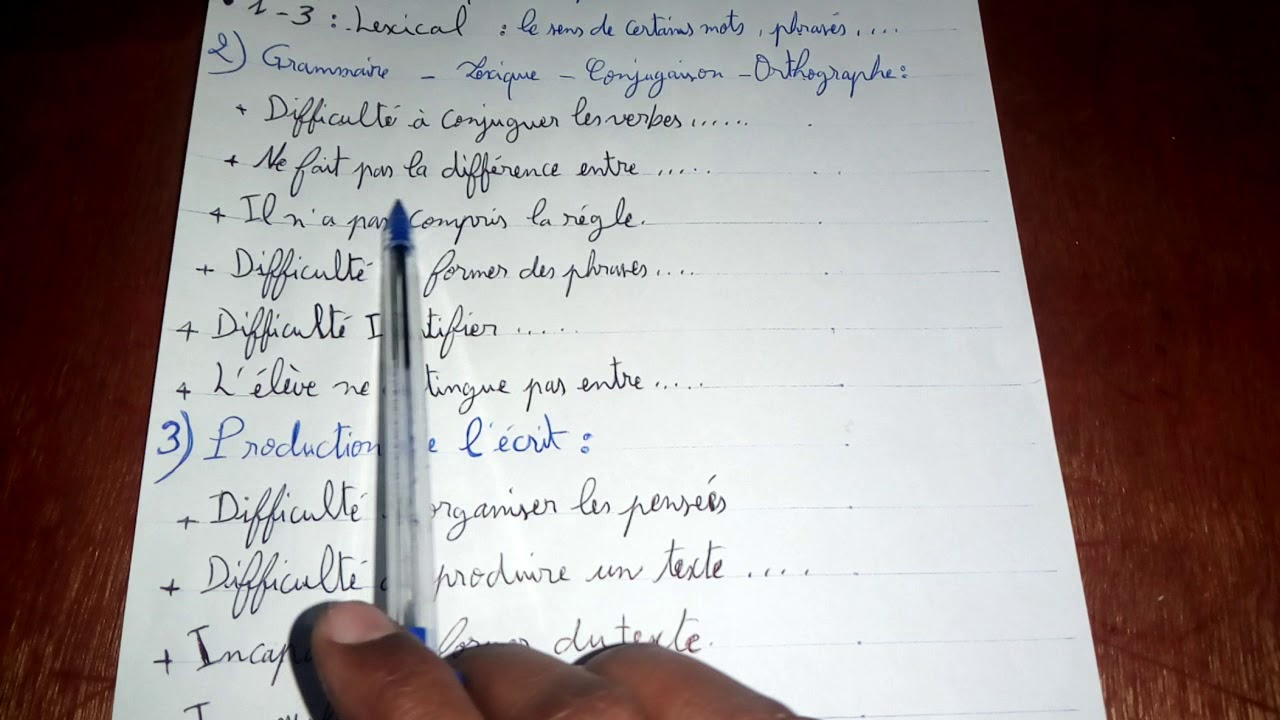 1-3 : Lexical : le sens de certains mots, phrases, ....
2) Grammaire - Lexique - Conjugaison - Orthographe :
+ Difficulté à conjuguer les verbes ......
+ Ne fait pas la différence entre .....
+ Il n'a pas compris la régle.
+ Difficulté former des phrases ....
+ Difficulté .....
+ L'élève ne pas entre .....
3) Production l'écrit :
+ Difficulté organiser les pensées
+ Difficulté produire un texte ....
+ du texte.